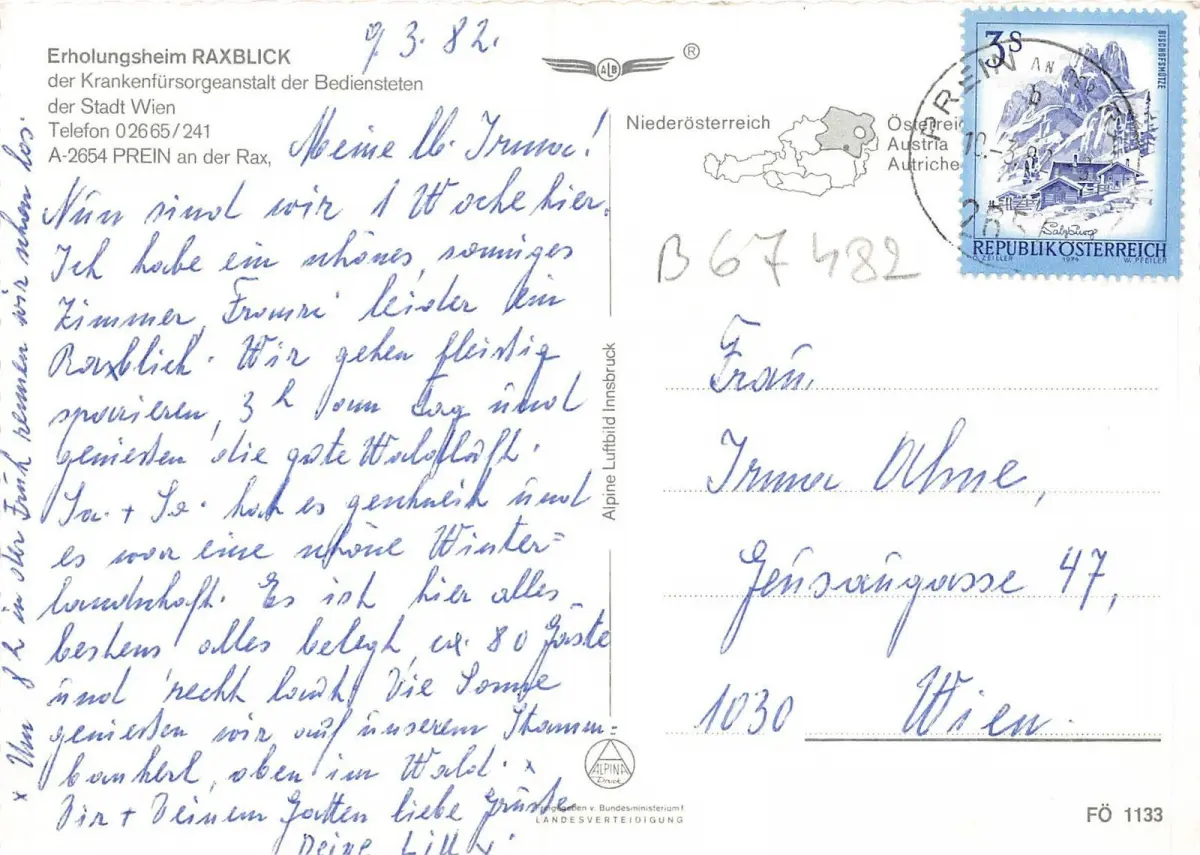 9.3.82.
Erholungsheim RAXBLICK
der Krankenfürsorgeanstalt der Bediensteten
der Stadt Wien
Telefon 02665/241
A-2654 PREIN an der Rax,
Meine lb. Irma!
Nun sind wir 1 Woche hier.
Ich habe ein schönes, sonniges
Zimmer, leider ein
Raxblick. Wir gehen fleissig
spazieren, 3 h am Tag und
geniessen die gute Waldluft.
Sa. + So. hat es geschneit und
es war eine schöne Winter=
landschaft. Es ist hier alles
bestens alles belegt, ca. 80 Gäste
und recht laut. Die Sonne
geniessen wir auf unserem Stamm=
bankerl, oben im Wald. x
Dir + Deinem Gatten liebe Grüsse
Deine
x Um 8 h in der Früh rennen wir schon los.
Alpine Luftbild Innsbruck
ALB
®
Niederösterreich
Österreic
Austria
Autriche
PREIN AN
b
10.-3.82
3S
BISCHOFSMÜTZE
Salzburg
REPUBLIK ÖSTERREICH
O. ZEILER 1974 W. PFEILER
B 67 482
Frau
Irma Ahne,
Geusaugasse 47,
1030 Wien.
ALPINA
Druck
Freigegeben v. Bundesministerium f.
LANDESVERTEIDIGUNG
FÖ 1133